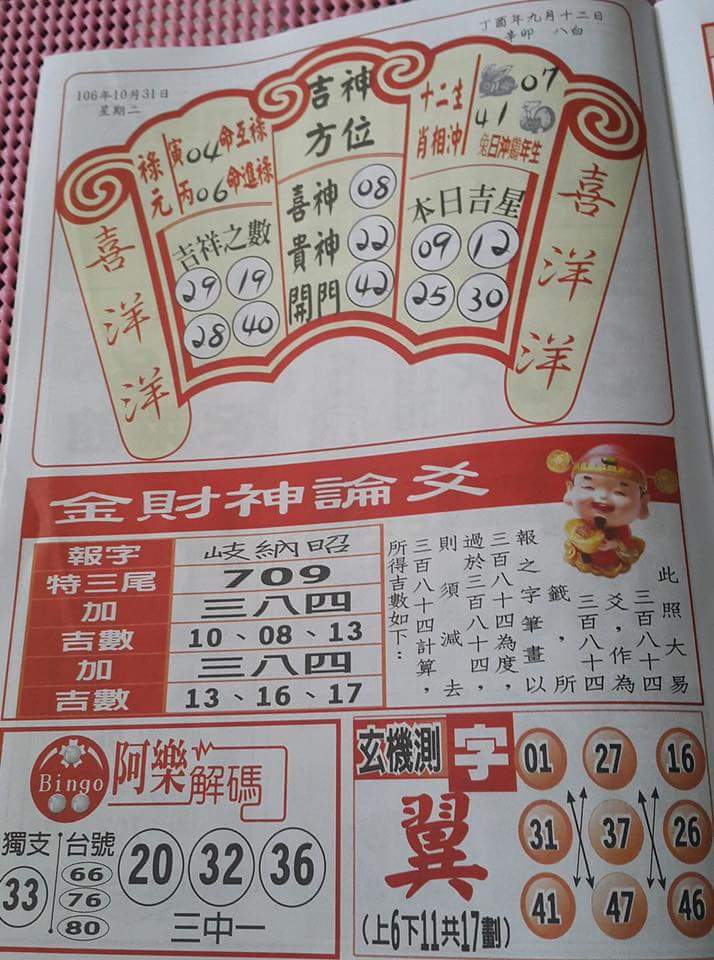 丁酉年九月十二日
辛卯 八白
106年10月31日
星期二
喜洋洋
祿元
寅04命互祿
丙06命進祿
吉祥之數
29 19
28 40
吉神方位
喜神 08
貴神 22
開門 42
十二生肖相沖
07
41
兔日沖鷄年生
本日吉星
09 12
25 30
喜洋洋
金財神論爻
報字 歧納昭
特三尾 709
加 三八四
吉數 10、08、13
加 三八四
吉數 13、16、17
此照大易
三百八十四
爻,作為
三百八十四
籤,所以
報之字筆畫
三百八十四為度,
過於三百八十四,
則須減去
三百八十四計算,
所得吉數如下:
Bingo 阿樂解碼
獨支
33
台號
66
76
80
20 32 36
三中一
玄機測字
翼
(上6下11共17劃)
01 27 16
31 37 26
41 47 46